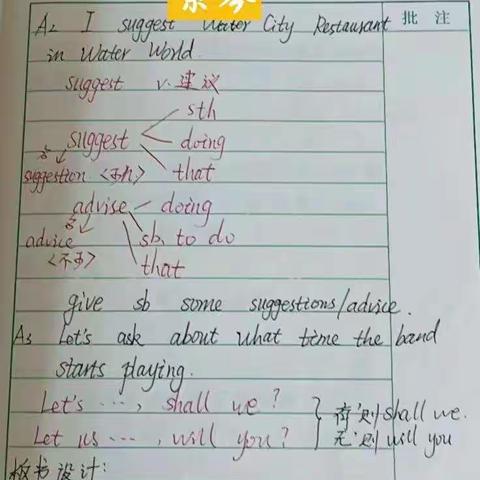 批 注
A₂ I suggest Water City Restaurant
in Water World.
suggest v. 建议
sth
suggest doing
suggestion <可九> that
advise doing
advice sb. to do
<不可> that
give sb some suggestions/advice.
A₃ Let's ask about what time the band
starts playing.
Let's ..., shall we? 有'则shall we.
Let us ..., will you? 无'则will you
板书设计: